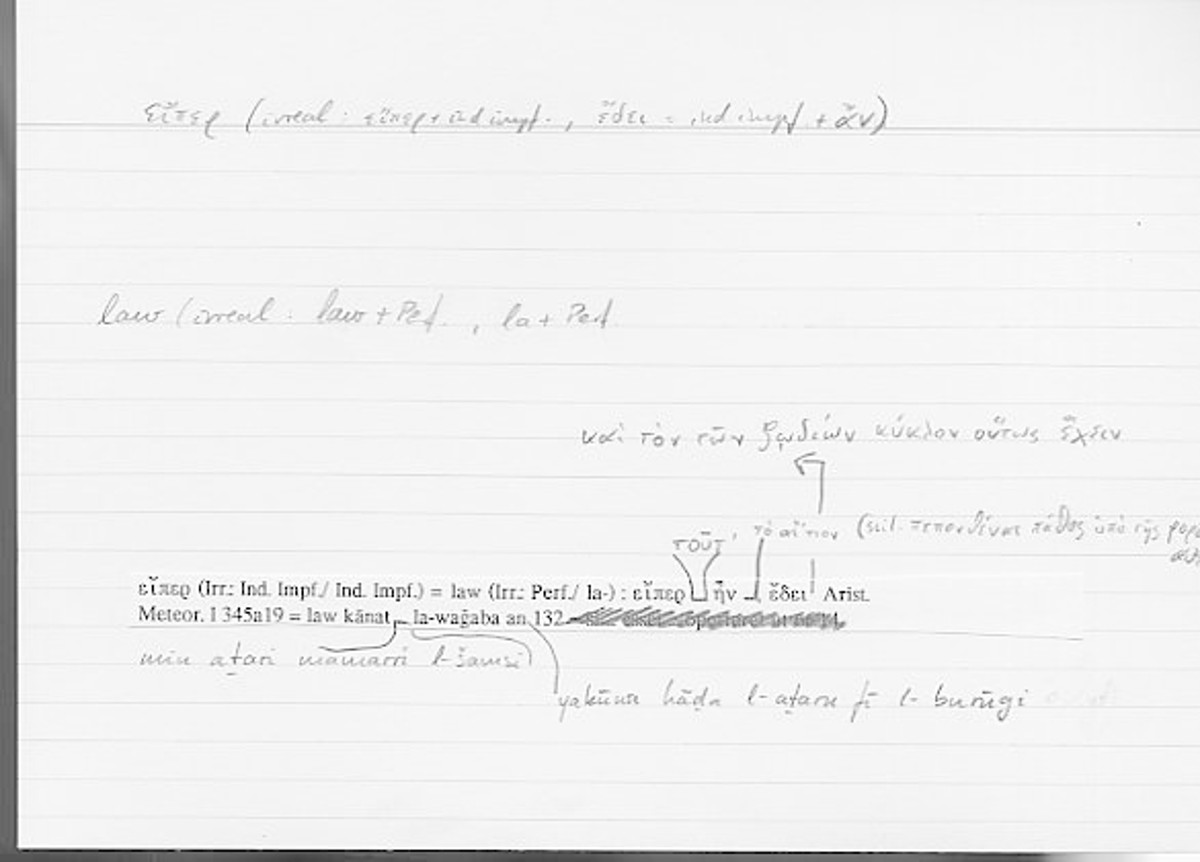 εἴπερ (irreal : εἴπερ + ind impf. , ἔδει = ind impf + ἄν)
law (irreal : law + Perf. , la + Perf.
καὶ τὸν τῶν ζῳδίων κύκλον οὕτως ἔχειν
τοῦτ' , τὸ αἴτιον (scil. πεπονθέναι πάθος ὑπὸ τῆς
εἴπερ (Irr.: Ind. Impf./ Ind. Impf.) = law (Irr.: Perf./ la-) : εἴπερ ἦν ἔδει Arist.
Meteor. I 345a19 = law kānat la-waǧaba an 132
min aṯari mamarri l-šamsi
yakūna hāḏa l-aṯaru fī l-burūǧi